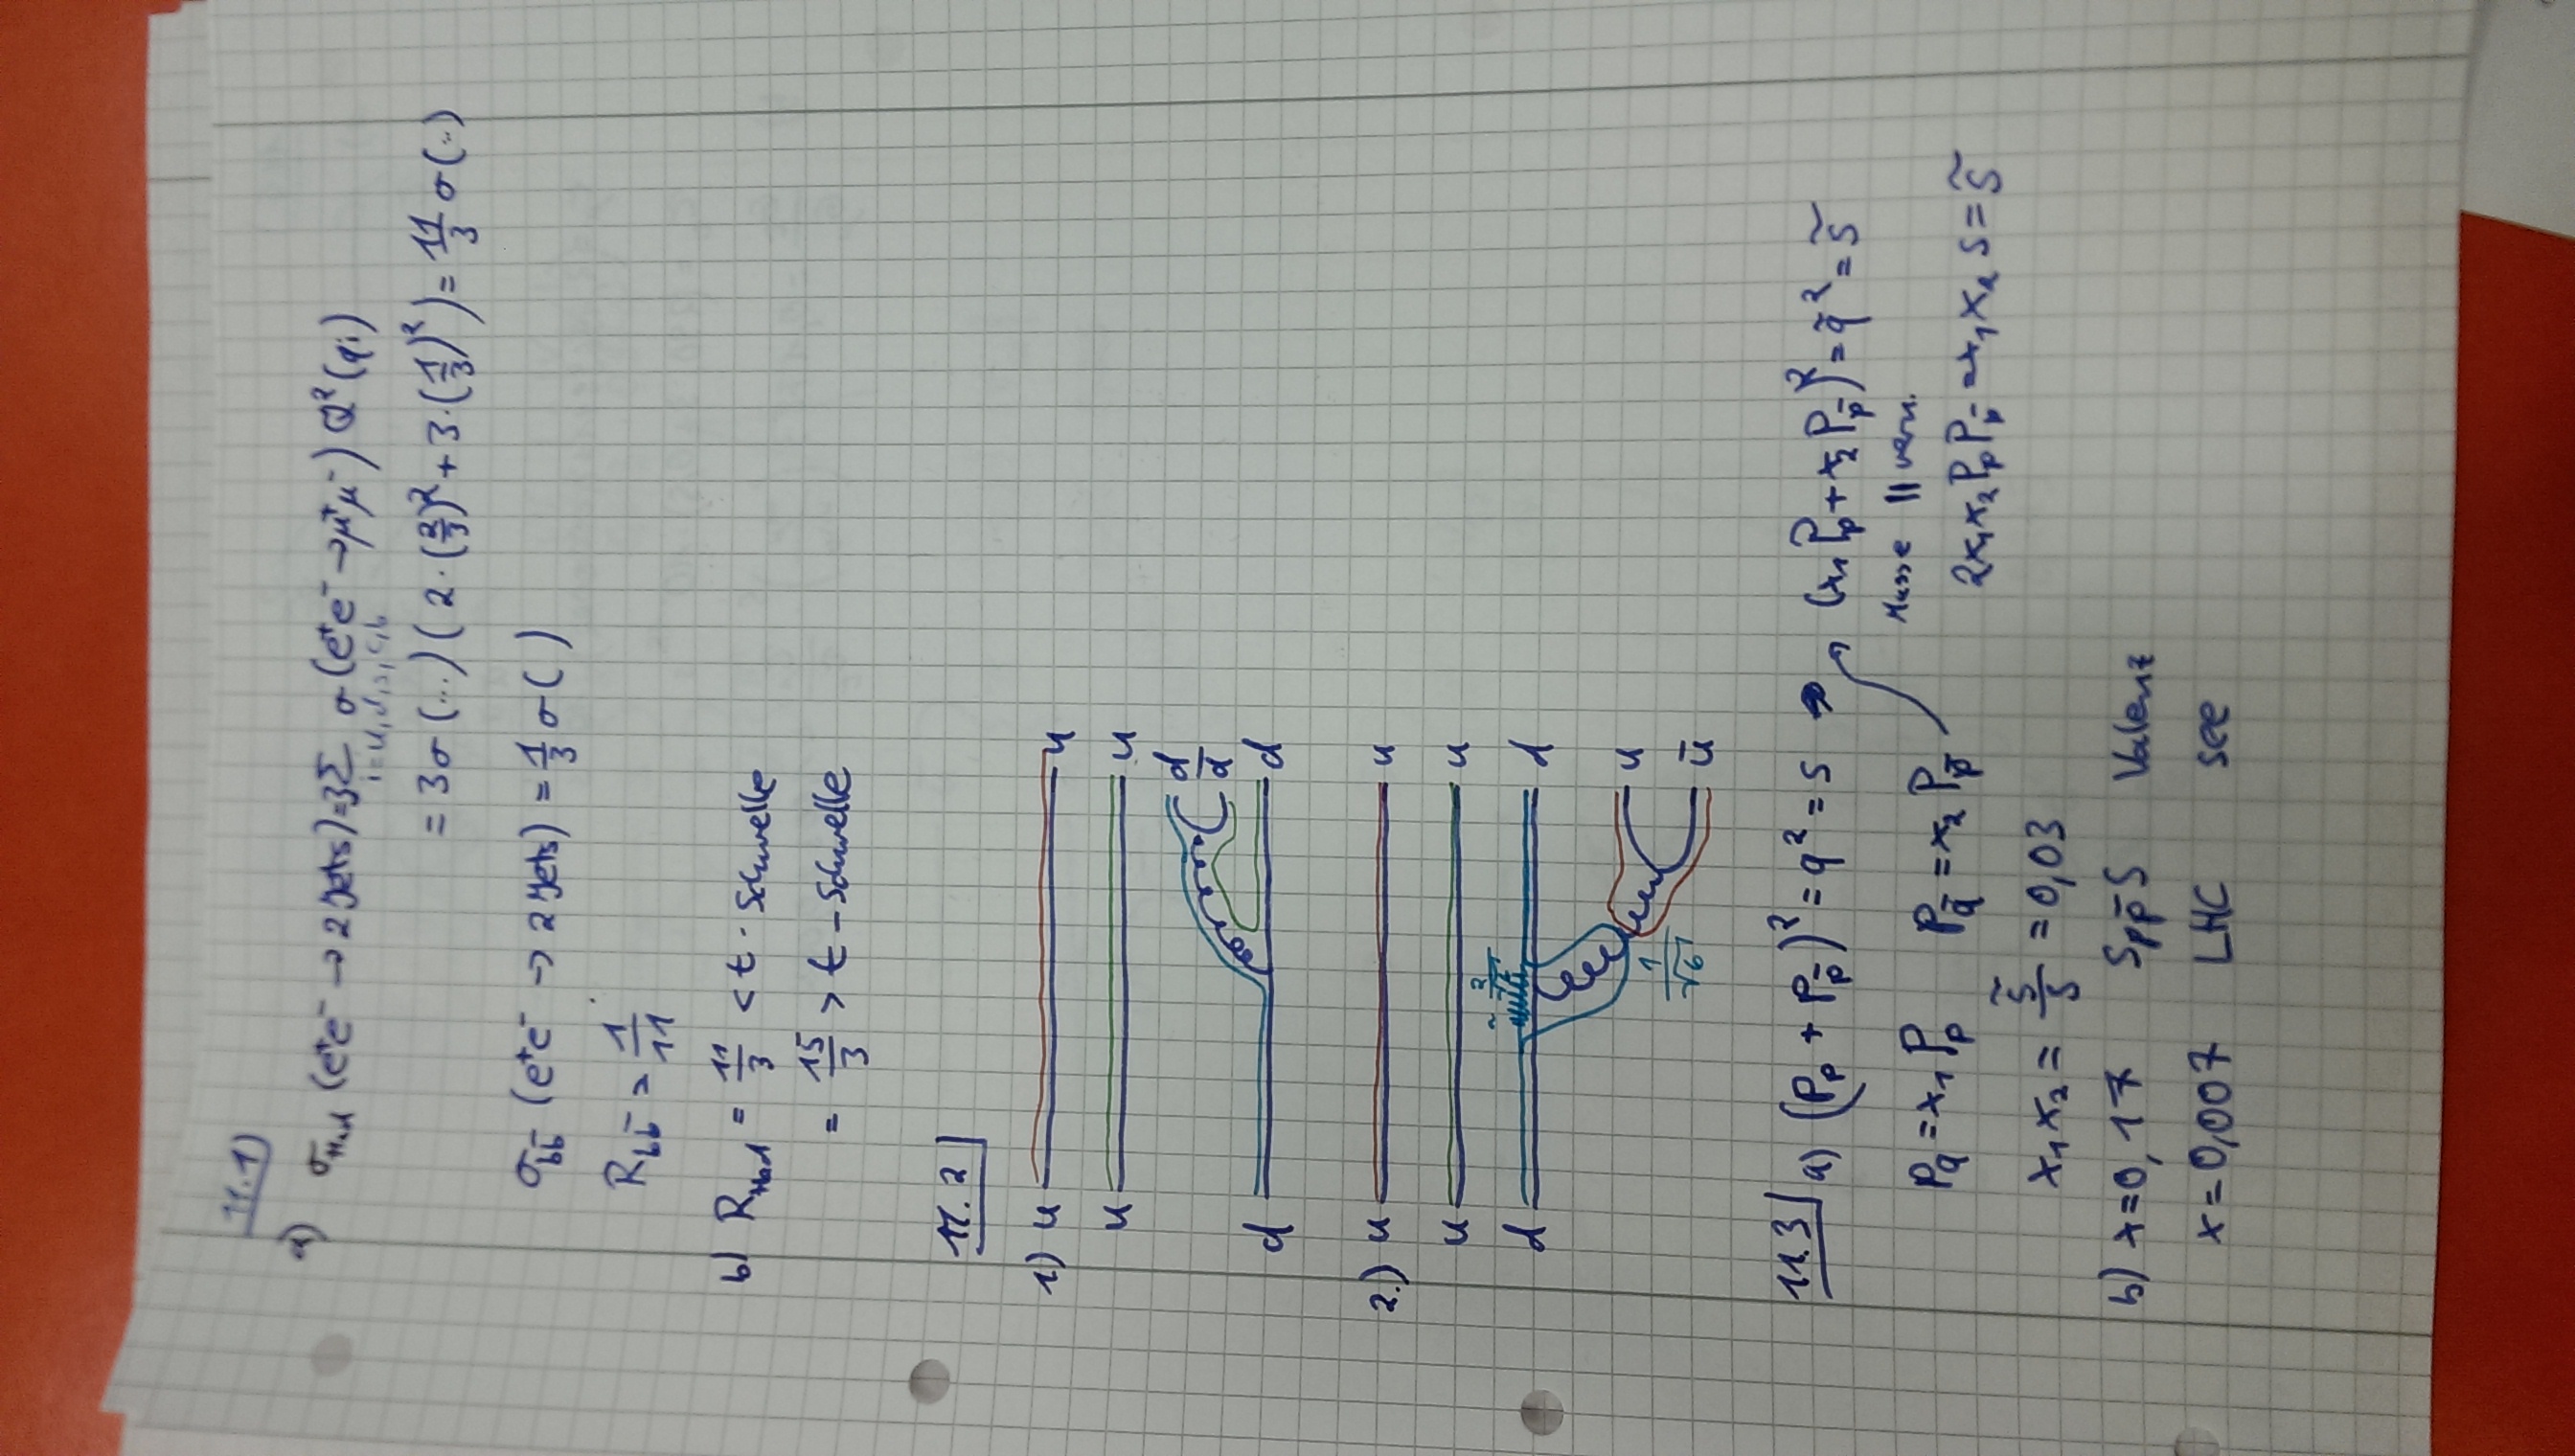 11.1)
a) σ_Had (e⁺e⁻ → 2 Jets) = 3 Σ σ (e⁺e⁻ → μ⁺μ⁻) Q² (qᵢ)
i=u,d,s,c,b
= 3σ (...) (2·(2/3)² + 3·(1/3)²) = 11/3 σ(..)
σ_bb̄ (e⁺e⁻ → 2 Jets) = 1/3 σ( )
R_bb̄ = 1/11
b) R_Had = 11/3 < t - Schwelle
= 15/3 > t - Schwelle
11.2
1) u u
u u
d
d̄
d d
2.) u u
u u
d d
1/√6
u
ū
11.3 a) (P_p + P_p̄)² = q² = s → (x₁P_p + x₂P_p̄)² = q̃² = s̃
Masse || vern.
P_q = x₁P_p P_q̄ = x₂P_p̄
2x₁x₂P_pP_p̄ = x₁x₂ s = s̃
x₁x₂ = s̃/s = 0,03
b) x = 0,17 Spp̄S Valenz
x = 0,007 LHC see